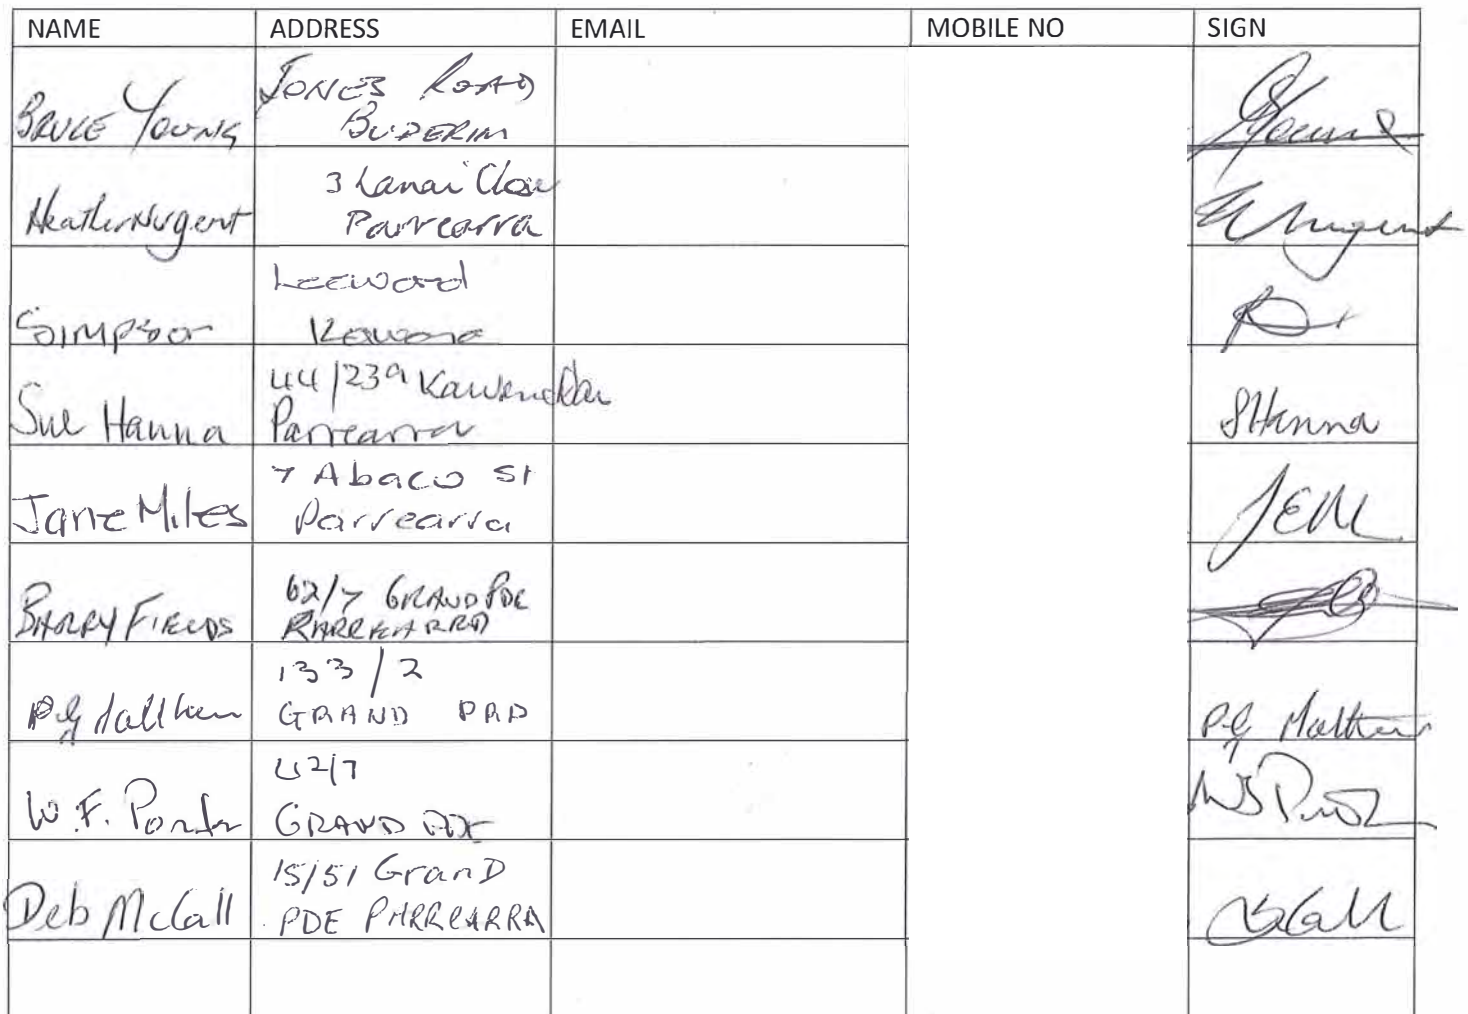 NAME ADDRESS EMAIL MOBILE NO SIGN
BRUCE YOUNG JONES ROAD
BUDERIM
Heather Nugent 3 Lanai Close
Parrearra
Nugent
SIMPSON Leeward
Kawana
Sue Hanna 44/239 Kawana
Parrearra
SHanna
Jane Miles 7 Abaco St
Parrearra
JEM
BARRY FIELDS 62/7 GRAND PDE
PARREARRA
P.G Matthew 133/2
GRAND PAD
P.G Matthew
W.F. Porter 42/7
GRAND PDE
Deb McCall 15/51 GranD
PDE PARREARRA